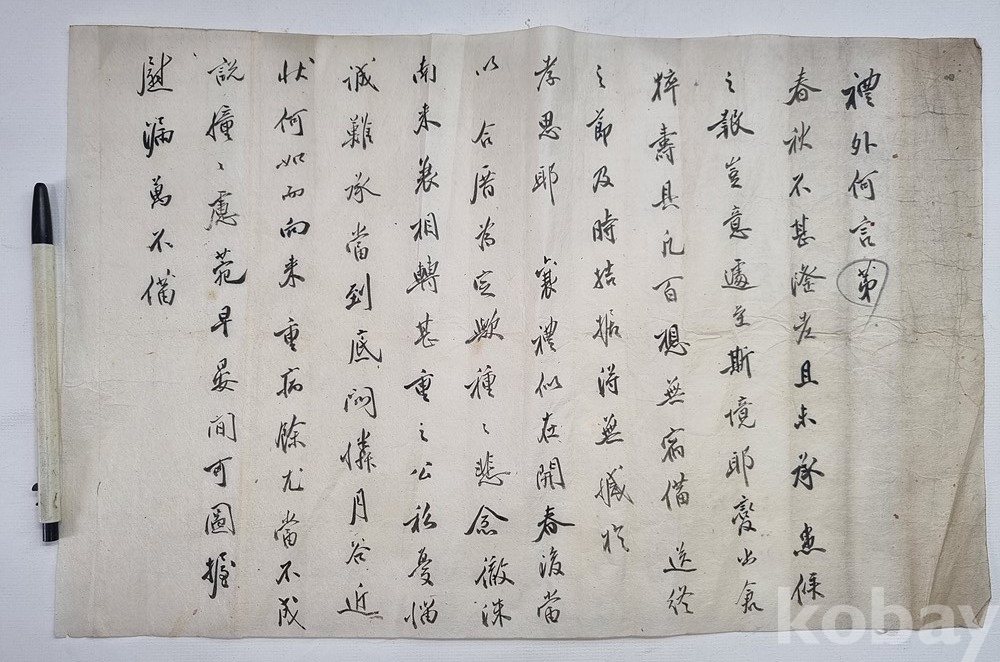 禮外何言第
春秋不甚隆老且未承 患候
之報豈意遽至斯境耶變出倉
猝壽具凡百想無宿備 送終
之節及時拮据得無憾於
孝思耶 襄禮似在開春後當
以合厝爲定歟種〻悲念徹
南來衰相轉甚重之公私憂惱
誠難承當到底悶憐月谷近
狀何如而向來重病餘尤當不成
說撞〻慮菀早晏間可圖握
慰漏萬不備
kobay